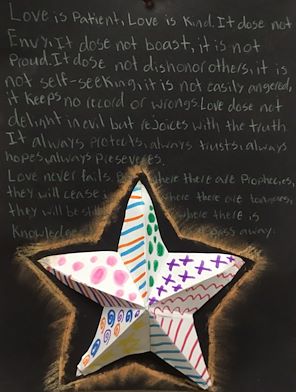 Love is Patient, Love is Kind. It dose not
Envy, It dose not boast, it is not
Proud. It dose not dishonor others, it is
not self-seeking, it is not easily angered,
it keeps no record or wrongs. Love dose not
delight in evil but rejoices with the truth.
It always protects, always trusts, always
hopes, always preseveres.
Love never fails. where there are Prophecies,
they will cease where there are tounges,
they will be where there is
Knowledge pass away.